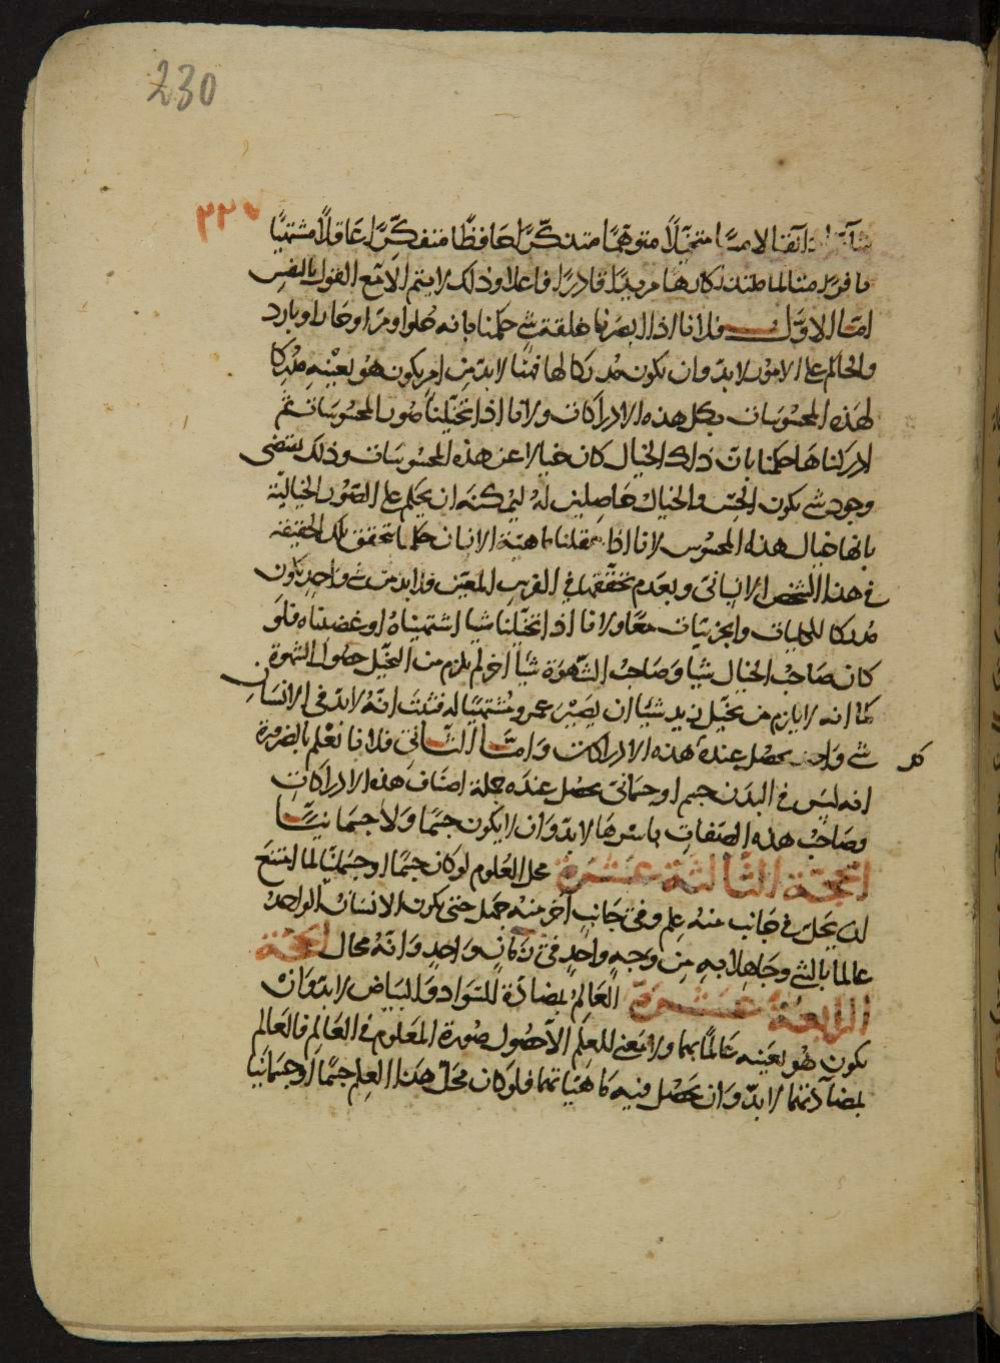 230
٢٢٧
ذائقا لامسا متخيّلاً متوهّما متذكّرا حافظًا متفكّرًا عَاقلاً مشتهيًا
نافرًا متألما ملتذّا كارهًا مريدًا قادرًا فاعلا وذلك لا يتم الا مع القول بالنفس
امّا الاوّل فلانا اذا ابصرنا علقة شي حكمنا بانه حلو او مرّ او حار او بارد
والحاكم على الامور لا بدّ وان يكون مُدركا لها فهنا لا بدّ من امر يكون هُو بعَيْنهِ مُدْركا
لهَذه المحسُوسَات بكل هذه الادراكات ولانا اذا تخيّلنا صُور المحسُوسَات ثمّ
ادركناهَا حكمنا بانّ ذلك الخيال كان خيالا عن هذه المحسُوسَات وذلك يقتضى
وجود شي يكون الحسّ والخيال حَاصِلين لهُ ليمكنه ان يحكم على الصّوَر الخياليّة
بانها خيال هذا المحسُوس ولانا اذا تعقلنا ماهيّة الانسان حكمنا بتحقق تلك الحقيقة
في هذا الشخص الانسانىّ وبعَدم تحققها في الفرس المعيّن فلا بد من شي وَاحدٍ يكون
مُدركا للكليات والجزئيّات معًا ولانا اذا تخيّلنا شيا اشتهيناهُ او غضبناه فلو
كان صَاحبُ الخيال شيا وصَاحبُ الشّهوَة شيًا اخر لم يلزم من التخيّل حصُول الشهوة
كما انه لا يلزم من تخيّل زيد شيًا ان يصيْرَ عمرو مُشتهيًا له فثبتَ انّهُ لا بدّ في الانسَان
كل
شي وَاحد يحصُل عندهُ هذه الادراكات وَامّا الثّانى فلانا نعْلم بالضرورة
انه ليسَ في البدَن جسم او جسمَانىّ يحصُل عندَه جملة اصنَاف هذه الادراكاتِ
وصَاحبُ هذه الصّفاتِ باسرهَا لا بدّ وَان لا يكون جسمًا وَلا جسمَانيًّا
الحجّة الثّالثة عَشَرة محل العُلوم لو كَانَ جسمًا او جسمانيًّا لما امتنعَ
ان يحلّ في جَانب منهُ عِلم وفي جَانبٍ آخر منهُ جهَل حتى يكون الانسَان الواحدُ
عالماً بالشي وجَاهِلاً بهِ مِن وجهٍ واحدٍ في زمَانٍ وَاحدٍ وَانّهُ محال الحجّة
الرابعة عَشَرة العَالِمُ بمضادّة للسَّوَاد وَالبَيَاض لا بدّ وَان
يكون هُو بعَينه عَالمًا بهما ولا مَعنى للعلمِ الاّ حصُول صُورة المَعلوم في العَالِمِ فالعَالِم
بمضادّتهما لا بدّ وَان يحصُل فيه مَاهيّاتهما فلو كان محَلّ هذا العلمِ جسمًا او جسمَانيا